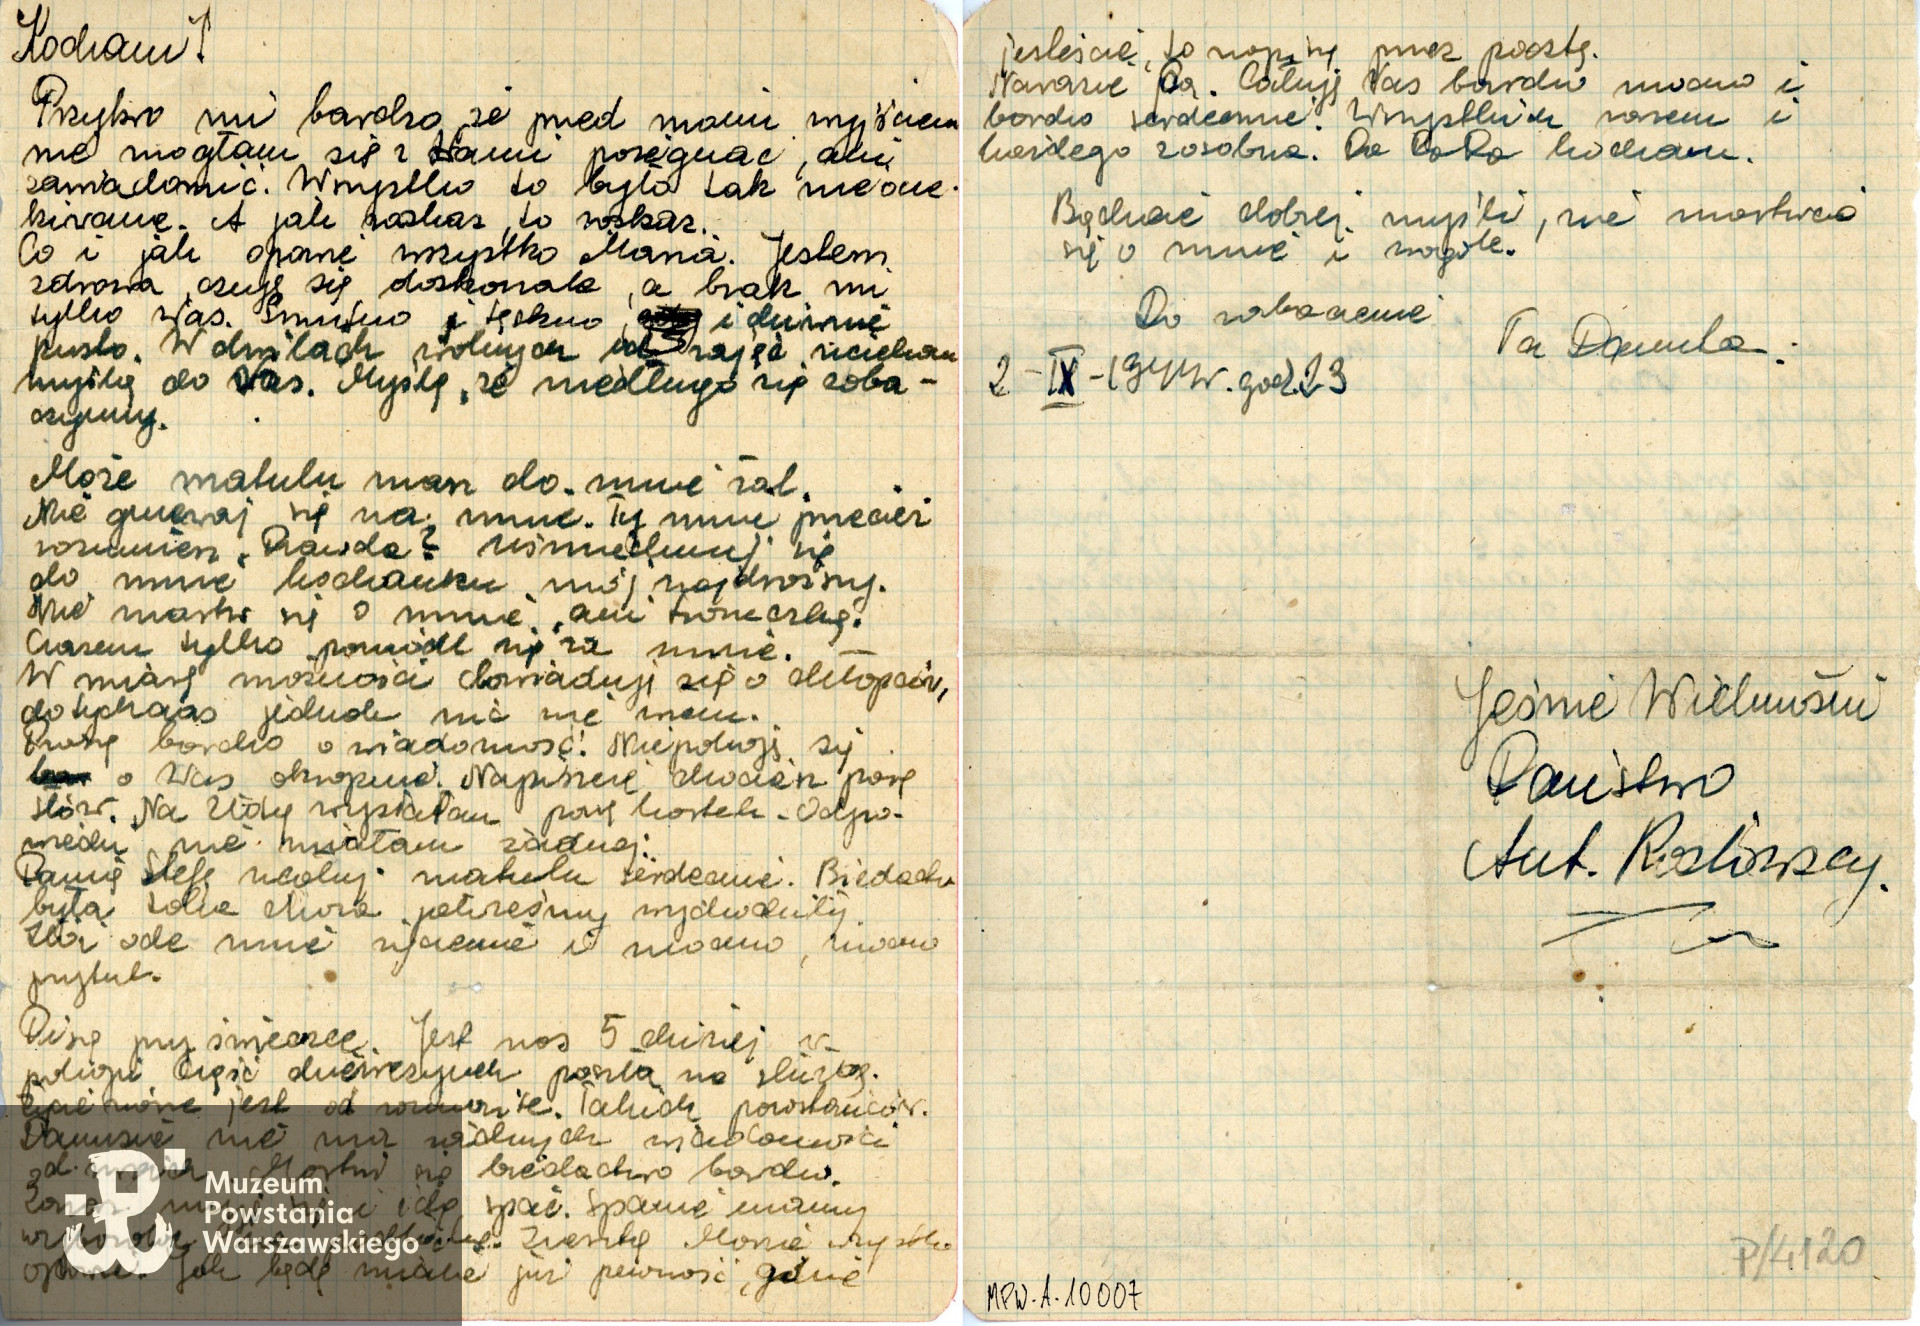 Kochani!
Przykro mi bardzo, że przed moim wyjściem
nie mogłam się z Wami pożegnać, ani
zawiadomić. Wszystko to było tak nieocze-
kiwane. A jak rozkaz, to rozkaz.
Co i jak opowie wszystko Mania. Jestem
zdrowa, czuję się doskonale, a brak mi
tylko Was. Smutno i tęskno, i dziwnie
pusto. W chwilach wolnych od zajęć uciekam
myślą do Was. Myślę, że niedługo się zoba-
czymy.
Może matulu masz do mnie żal.
Nie gniewaj się na mnie. Ty mnie przecież
rozumiesz. Prawda? Uśmiechnij się
do mnie kochanku mój najdroższy.
Nie martw się o mnie, ani troszeczkę.
Czasem tylko pomódl się za mnie.
W miarę możności dowiaduję się o chłopców,
dotychczas jednak nic nie wiem.
Proszę bardzo o wiadomość! Niepokoję się
o Was okropnie. Napiszcie chociaż parę
słów. Na Złotą wysłałam parę kartek. Odpo-
wiedzi nie miałam żadnej.
Panią Stefę ucałuj matulu serdecznie. Biedaczka
była taka chora, jakeśmy wychodziły.
ode mnie i mocno, mocno
przytul.
Piszę przy świeczce. Jest nas 5 dzisiej w
pokoju. Część dziewczynek poszła na służbę.
jest od rozmowite. Takich powstańców.
Danusia nie ma żadnych wiadomości
od swoich. Martwi się biedactwo bardzo.
i idę spać. Spanie mamy
Zresztą Mania wszystko
opowie. Jak będę miała już pewność, gdzie
jesteście, to napiszę przez pocztę.
Narazie Pa. Całuję Was bardzo mocno i
bardzo serdecznie. Wszystkich razem i
każdego zosobna. Pa Pa Pa kochani.
Bądźcie dobrej myśli, nie martwcie
się o mnie i wogóle.
Do zobaczenia
Ta Danula.
2-IX-1944r. godz. 23
Jaśnie Wielmożni
Państwo
Ant.
P/4120
MPW-A-10007
Muzeum
Powstania
Warszawskiego